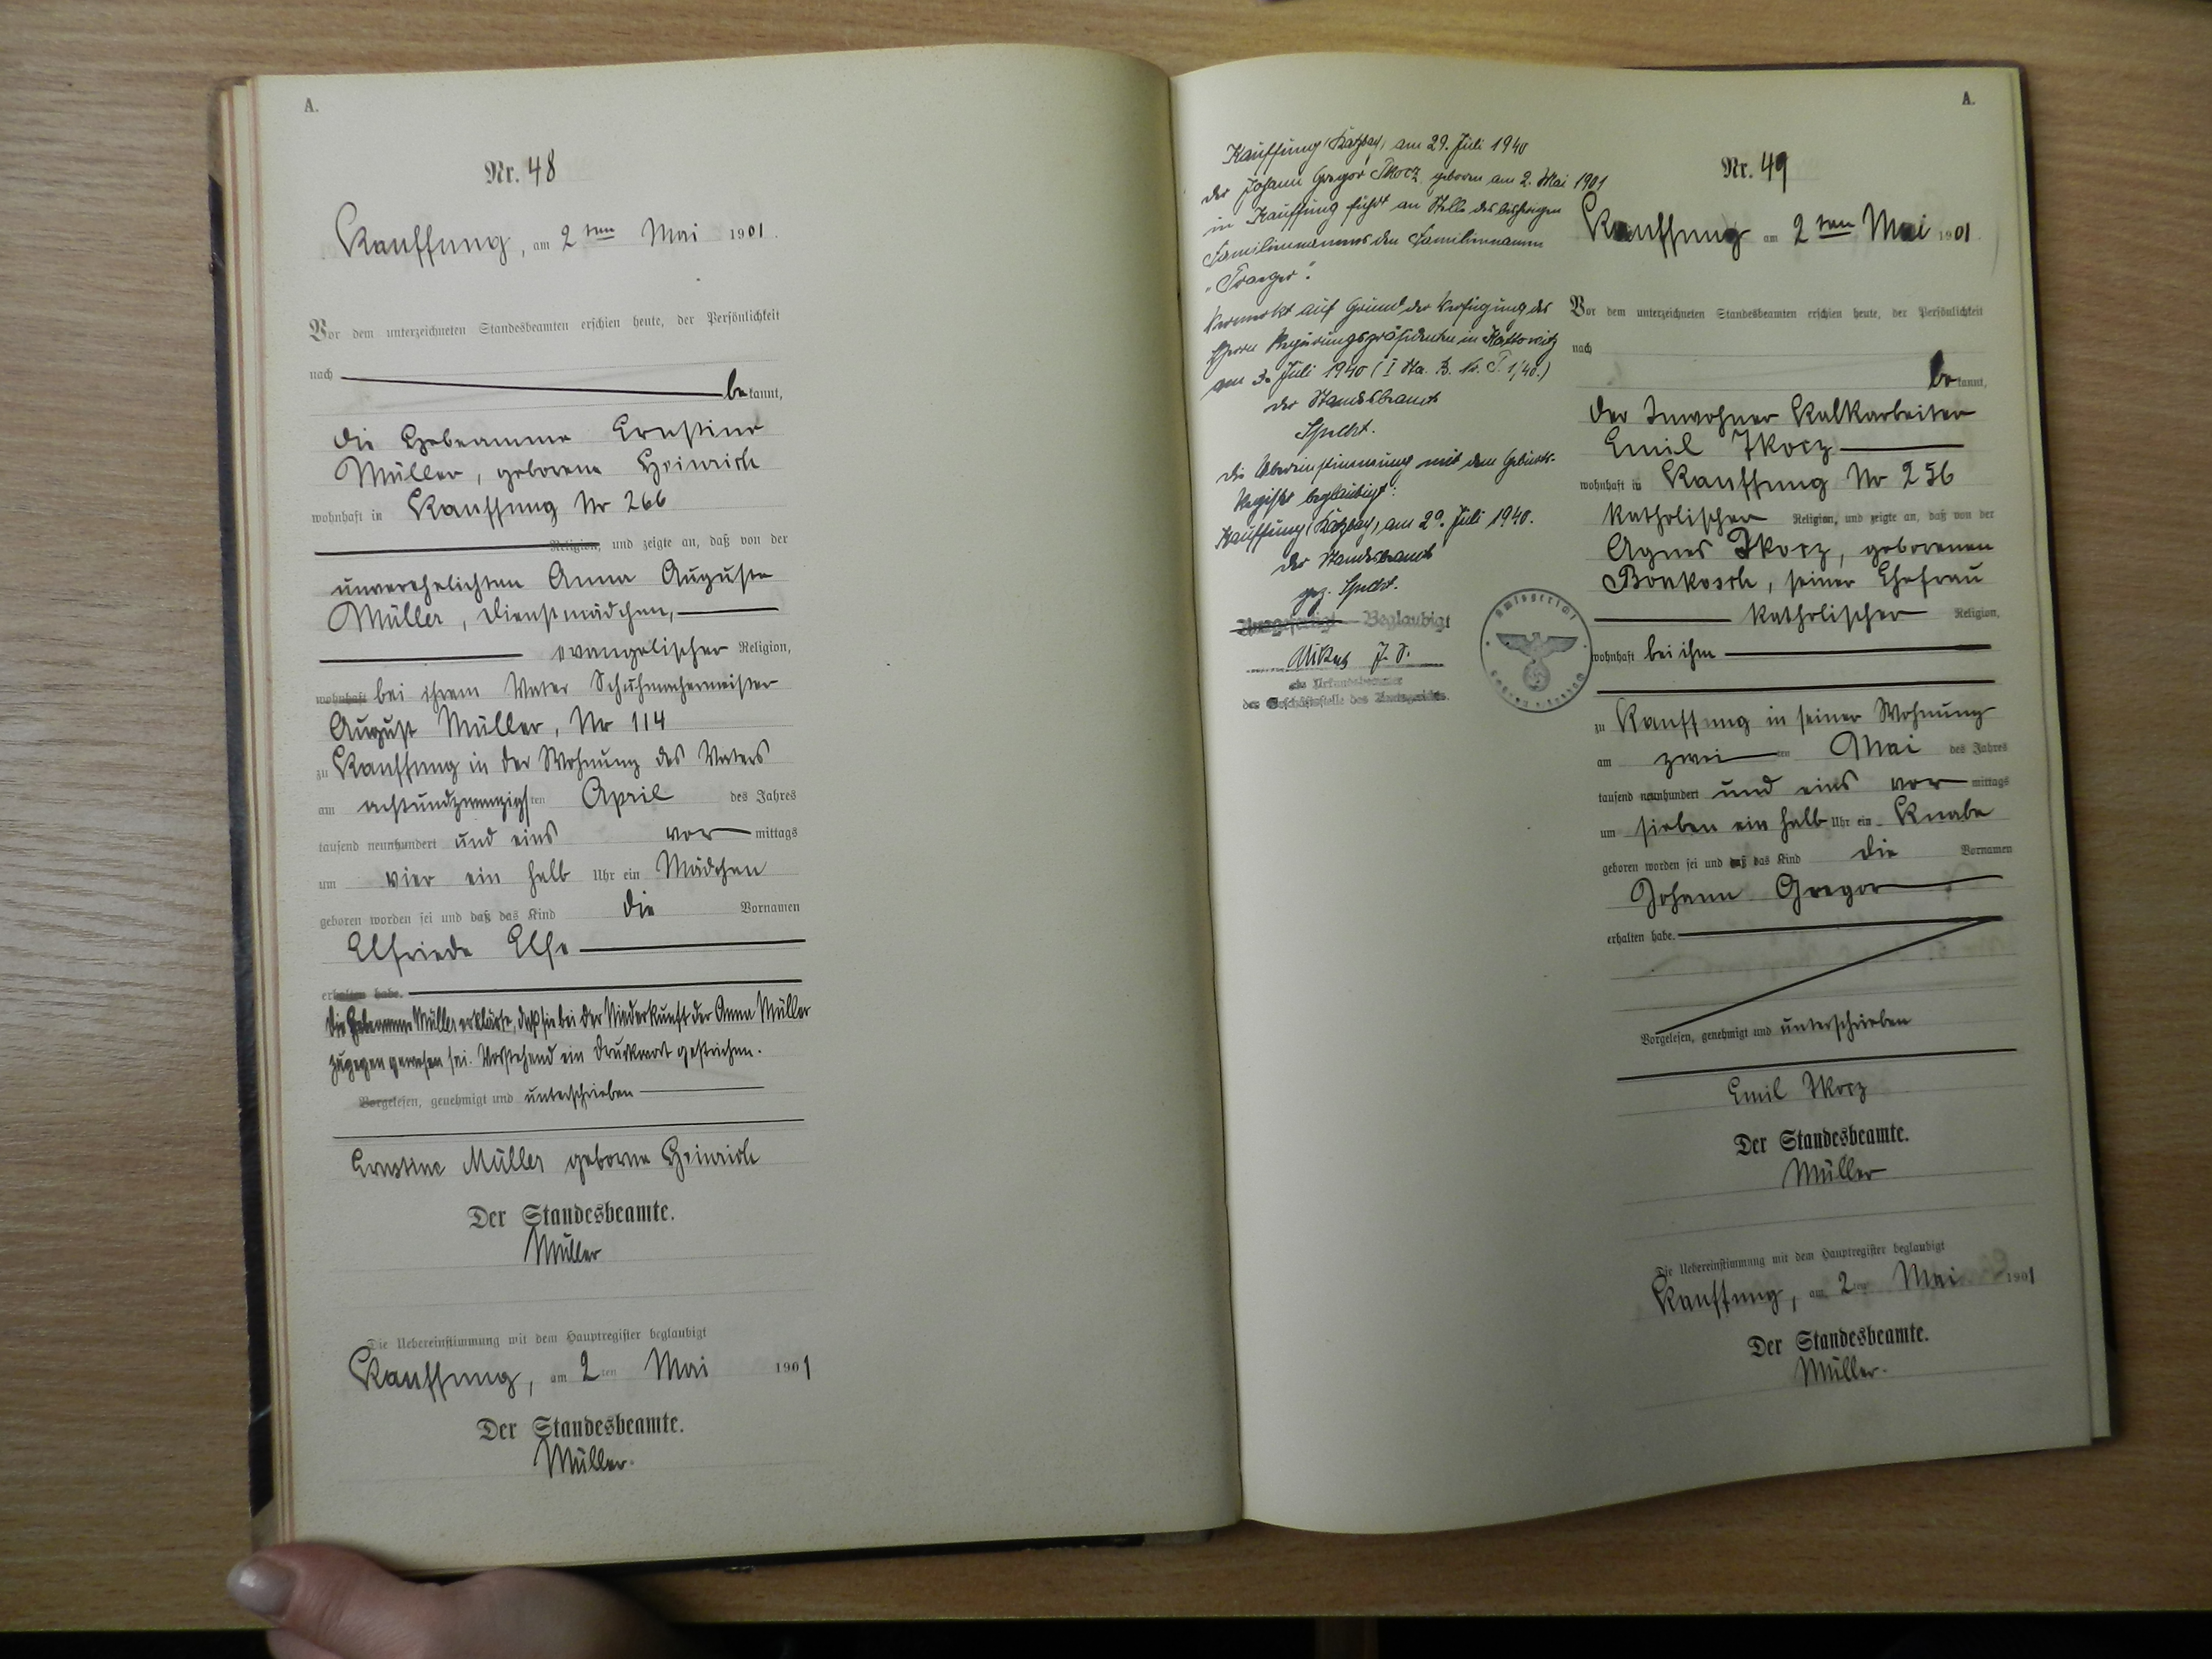 A.
Nr. 48
Kauffung, am 2ten Mai 1901.
Vor dem unterzeichneten Standesbeamten erschien heute, der Persönlichkeit
nach
bekannt,
die Hebeamme Ernstine
Müller, geborene Heinrich
wohnhaft in Kauffung Nr 266
Religion, und zeigte an, daß von der
unverehelichten Anna Auguste
Müller, Dienstmädchen,
evangelischer Religion,
wohnhaft bei ihrem Vater Schuhmachermeister
August Müller, Nr 114
zu Kauffung in der Wohnung des Vaters
am achtundzwanzigsten April des Jahres
tausend neunhundert und eins vormittags
um vier ein halb Uhr ein Mädchen
geboren worden sei und daß das Kind die Vornamen
Elfriede Else
erhalten habe.
Die Hebeamme Müller erklärte, daß sie bei der Niederkunft der Anna Müller
zugegen gewesen sei. Vorstehend ein Druckwort gestrichen.
Vorgelesen, genehmigt und unterschrieben
Ernstine Müller geborne Heinrich
Der Standesbeamte.
Müller
Die Uebereinstimmung mit dem Hauptregister beglaubigt
Kauffung, am 2ten Mai 1901
Der Standesbeamte.
Müller.
Kauffung (Katzbach), am 29. Juli 1940
Der Johann Gregor Tkocz geboren am 2. Mai 1901
in Kauffung führt an Stelle des bisherigen
Familiennamens den Familiennamen
Vermerkt auf Grund der Verfügung des
Herrn Regierungspräsidenten in Kattowitz
am 3. Juli 1940 (I
Der Standesbeamte
Die Übereinstimmung mit dem Geburts-
Register beglaubigt:
Kauffung (Katzbach), am 29. Juli 1940.
Der Standesbeamte
gez.
Ausgefertigt Beglaubigt
J. S.
als Urkundsbeamter
der Geschäftsstelle des Amtsgerichts.
Amtsgericht
A.
Nr. 49
Kauffung am 2ten Mai 1901.
Vor dem unterzeichneten Standesbeamten erschien heute, der Persönlichkeit
nach
bekannt,
der Inwohner Kalkarbeiter
Emil Tkocz
wohnhaft in Kauffung Nr 256
katholischer Religion, und zeigte an, daß von der
Agnes Tkocz, geborenen
Bonkosch, seiner Ehefrau
katholischer Religion,
wohnhaft bei ihm
zu Kauffung in seiner Wohnung
am zweiten Mai des Jahres
tausend neunhundert und eins vormittags
um sieben ein halb Uhr ein Knabe
geboren worden sei und daß das Kind die Vornamen
Johann Gregor
erhalten habe.
Vorgelesen, genehmigt und unterschrieben
Emil Tkocz
Der Standesbeamte.
Müller
Die Uebereinstimmung mit dem Hauptregister beglaubigt
Kauffung, am 2ten Mai 1901
Der Standesbeamte.
Müller.